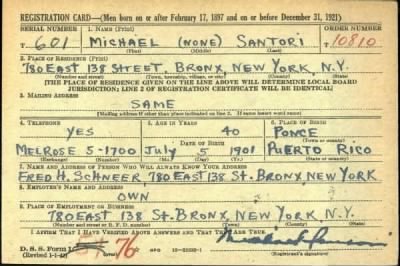 REGISTRATION CARD—(Men born on or after February 17, 1897 and on or before December 31, 1921)
SERIAL NUMBER 1. NAME (Print) ORDER NUMBER
T 601 MICHAEL (NONE) SANTORI 10810
(First) (Middle) (Last)
2. PLACE OF RESIDENCE (Print)
780 EAST 138 STREET, BRONX, NEW YORK, N.Y.
(Number and street) (Town, township, village, or city) (County) (State)
[THE PLACE OF RESIDENCE GIVEN ON THE LINE ABOVE WILL DETERMINE LOCAL BOARD
JURISDICTION; LINE 2 OF REGISTRATION CERTIFICATE WILL BE IDENTICAL]
3. MAILING ADDRESS
SAME
[Mailing address if other than place indicated on line 2. If same insert word same]
4. TELEPHONE 5. AGE IN YEARS 6. PLACE OF BIRTH
YES 40 PONCE
DATE OF BIRTH (Town or county)
MELROSE 5-1700 JULY 5 1901 PUERTO RICO
(Exchange) (Number) (Mo.) (Day) (Yr.) (State or country)
7. NAME AND ADDRESS OF PERSON WHO WILL ALWAYS KNOW YOUR ADDRESS
FRED H. SCHNEER, 780 EAST 138 ST. BRONX, NEW YORK
8. EMPLOYER'S NAME AND ADDRESS
OWN
9. PLACE OF EMPLOYMENT OR BUSINESS
780 EAST 138 ST. BRONX, NEW YORK, N.Y.
(Number and street or R. F. D. number) (Town) (County) (State)
I AFFIRM THAT I HAVE VERIFIED ABOVE ANSWERS AND THAT THEY ARE TRUE.
D. S. S. Form 1 76 GPO
(Revised 1-1-42) (Registrant's signature)